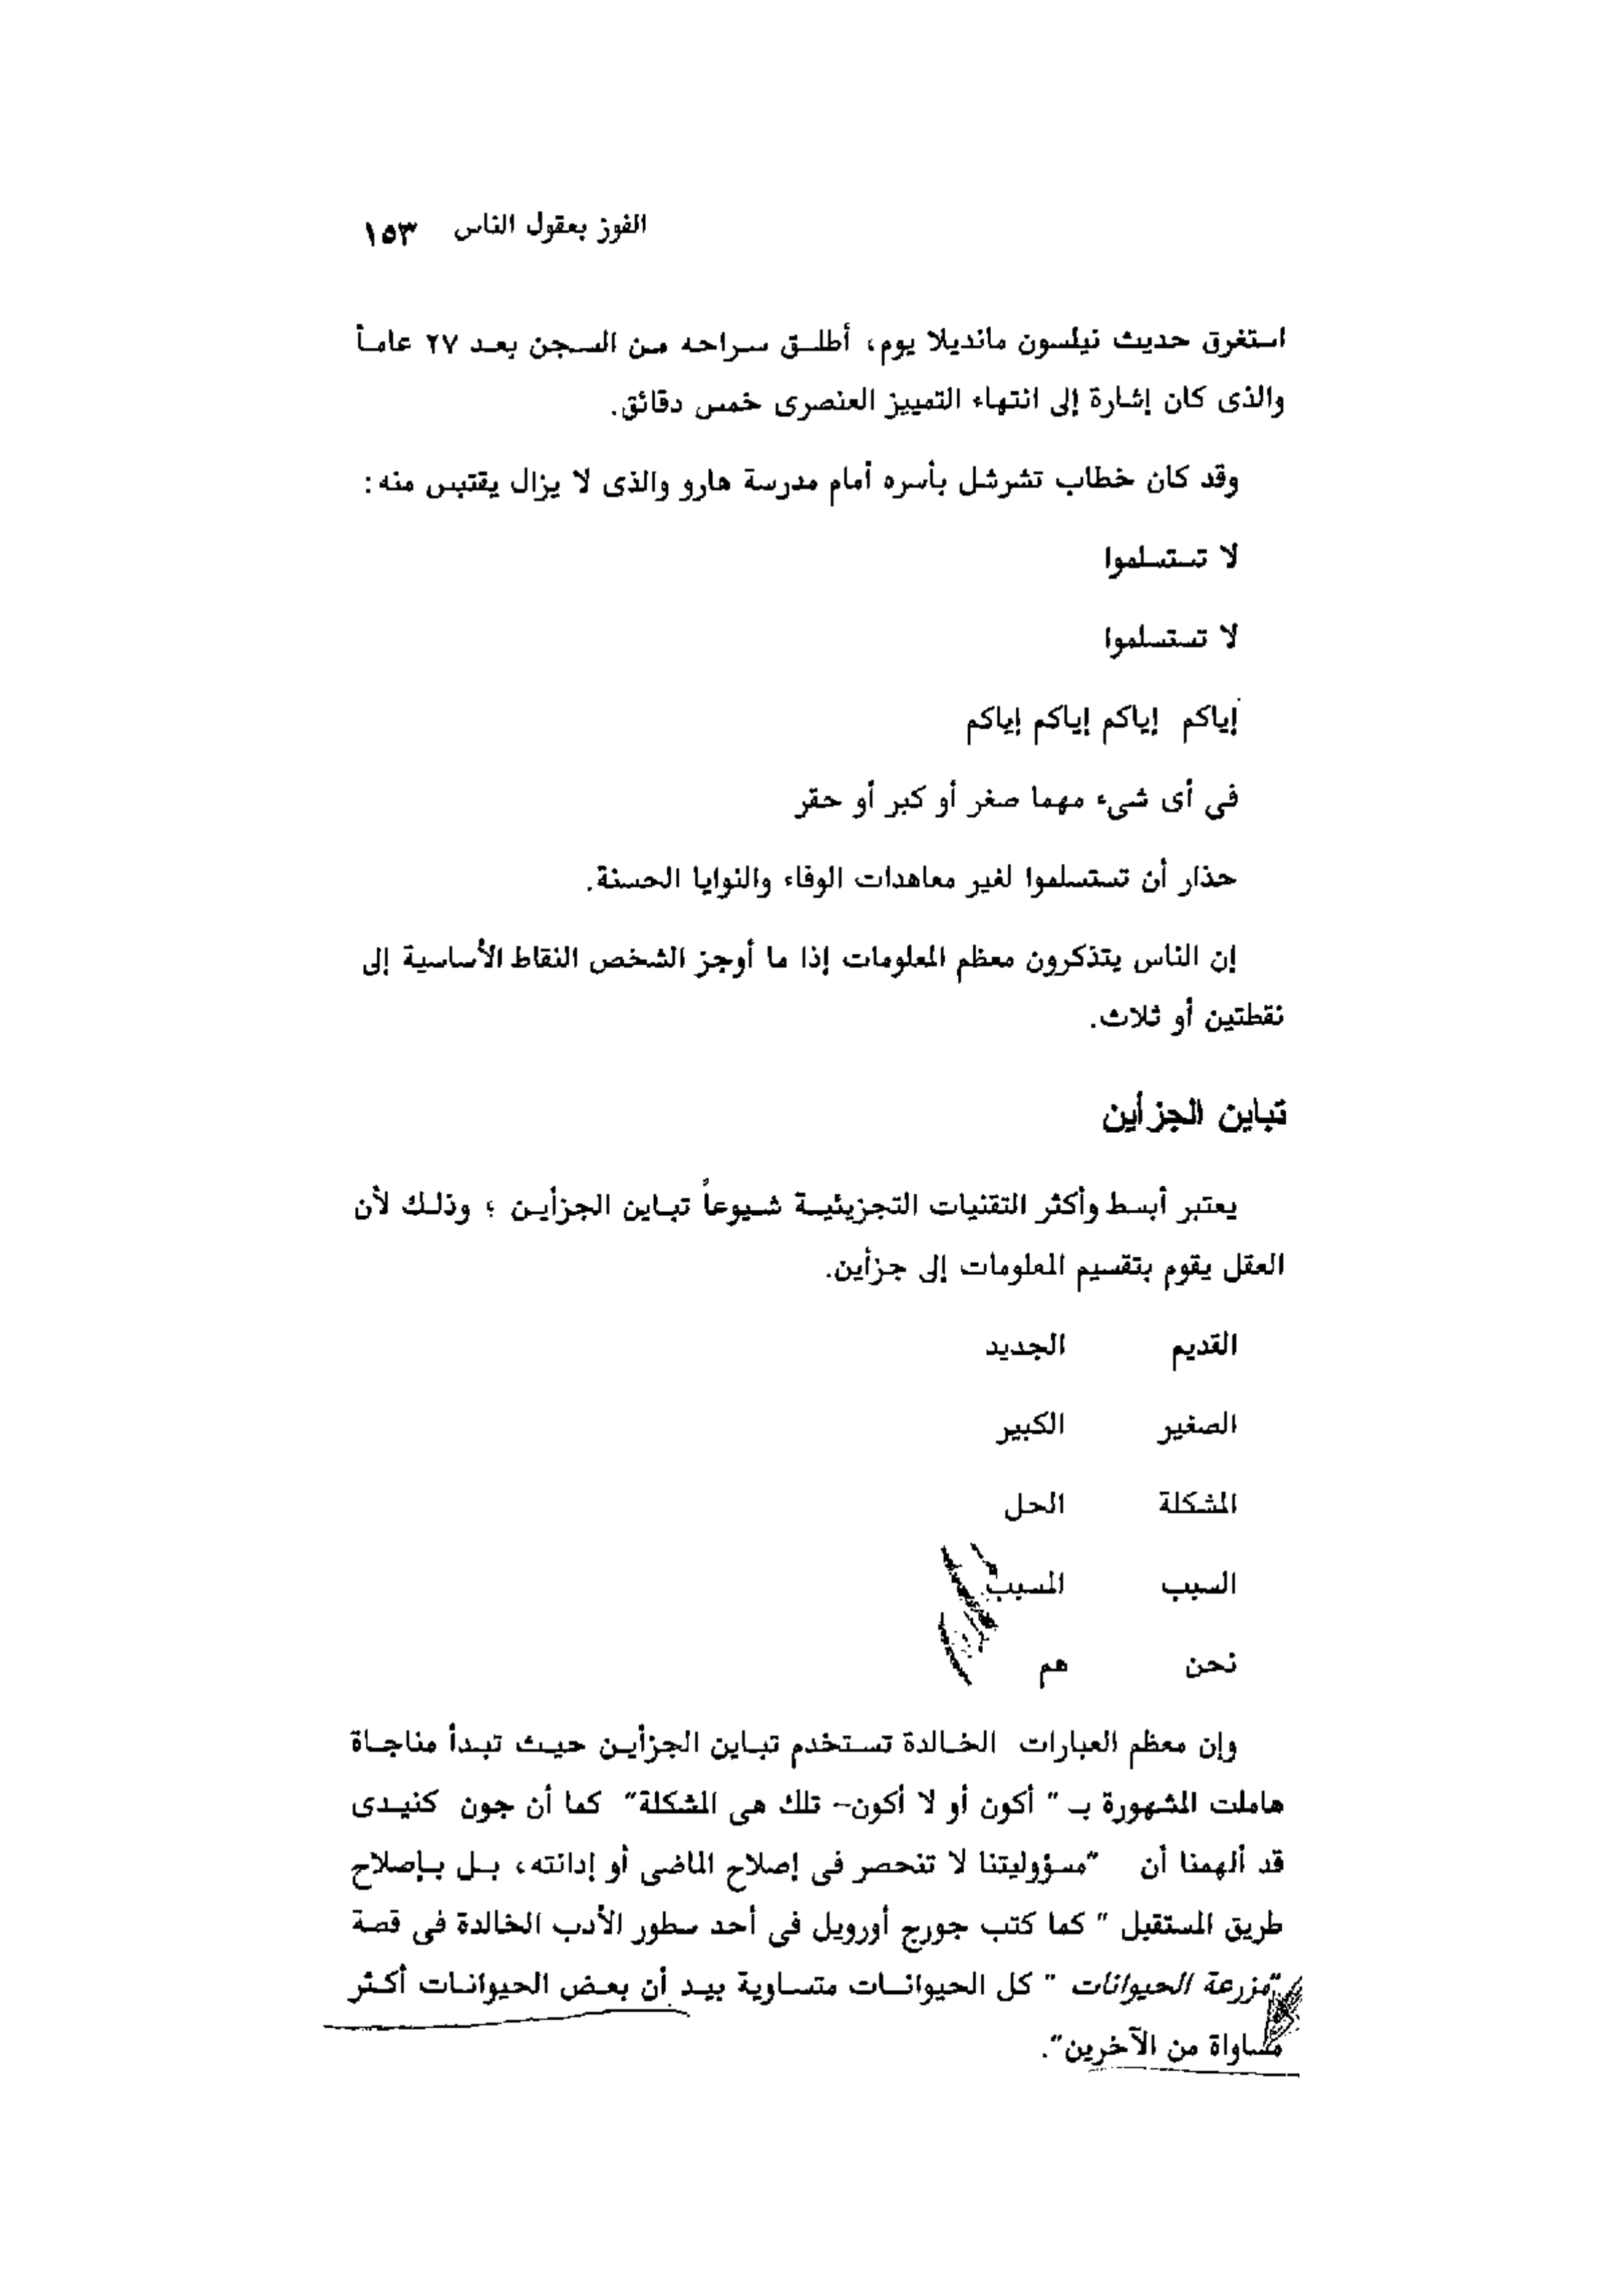 الفوز بعقول الناس ١٥٣
استغرق حديث نيلسون مانديلا يوم، أطلق سراحه من السجن بعد ٢٧ عاماً
والذى كان إشارة إلى انتهاء التمييز العنصرى خمس دقائق.
وقد كان خطاب تشرشل بأسره أمام مدرسة هارو والذى لا يزال يقتبس منه:
لا تستسلموا
لا تستسلموا
إياكم إياكم إياكم إياكم
فى أى شىء مهما صغر أو كبر أو حقر
حذار أن تستسلموا لغير معاهدات الوفاء والنوايا الحسنة.
إن الناس يتذكرون معظم المعلومات إذا ما أوجز الشخص النقاط الأساسية إلى
نقطتين أو ثلاث.
تباين الجزأين
يعتبر أبسط وأكثر التقنيات التجزيئية شيوعاً تباين الجزأين ؛ وذلك لأن
العقل يقوم بتقسيم المعلومات إلى جزأين.
القديم الجديد
الصغير الكبير
المشكلة الحل
السبب المسبب
نحن هم
وإن معظم العبارات الخالدة تستخدم تباين الجزأين حيث تبدأ مناجاة
هاملت المشهورة بـ " أكون أو لا أكون- تلك هى المشكلة" كما أن جون كنيدى
قد ألهمنا أن "مسؤوليتنا لا تنحصر فى إصلاح الماضى أو إدانته، بل بإصلاح
طريق المستقبل " كما كتب جورج أورويل فى أحد سطور الأدب الخالدة فى قصة
"مزرعة الحيوانات " كل الحيوانات متساوية بيد أن بعض الحيوانات أكثر
مساواة من الآخرين".